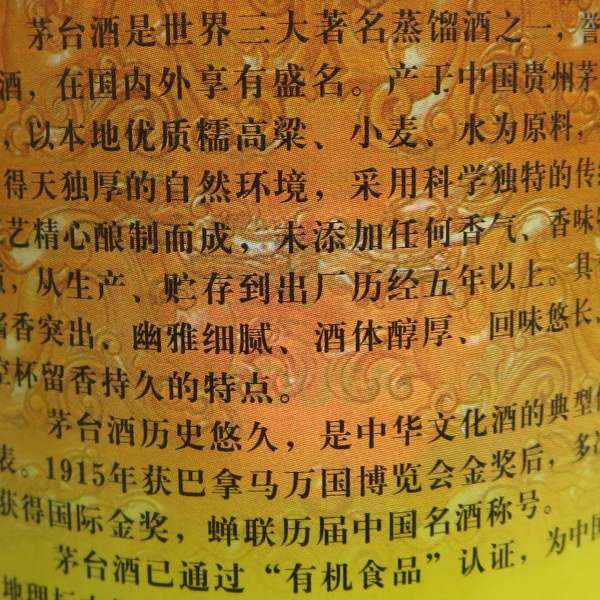 茅台酒是世界三大著名蒸馏酒之一，誉
酒，在国内外享有盛名。产于中国贵州茅
，以本地优质糯高粱、小麦、水为原料，
得天独厚的自然环境，采用科学独特的传统
工艺精心酿制而成，未添加任何香气、香味物
质，从生产、贮存到出厂历经五年以上。具有
酱香突出、幽雅细腻、酒体醇厚、回味悠长、
空杯留香持久的特点。
茅台酒历史悠久，是中华文化酒的典型代
表。1915年获巴拿马万国博览会金奖后，多次
获得国际金奖，蝉联历届中国名酒称号。
茅台酒已通过“有机食品”认证，为中国
地理标